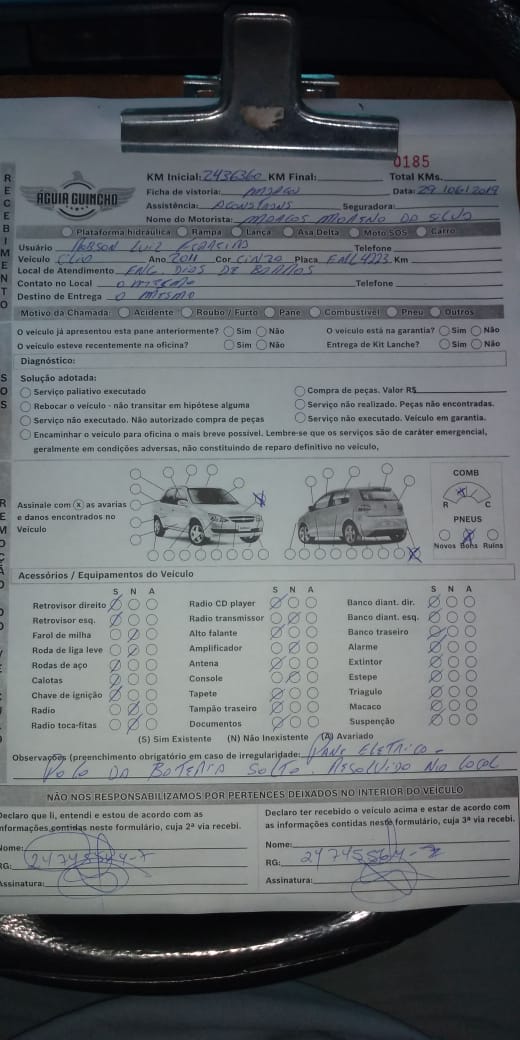 0185
RECEBIMENTO
ÁGUIA GUINCHO
KM Inicial: 2436360 KM Final: Total KMs.
Ficha de vistoria: Data: 29/06/2019
Assistência: Seguradora:
Nome do Motorista: MARCOS MORENO DA SILVA
Plataforma hidráulica Rampa Lança Asa Delta Moto SOS Carro
Usuário LUIZ FERREIRA Telefone
Veículo CLIO Ano 2011 Cor CINZA Placa Km
Local de Atendimento ENG. DIAS DE BARROS
Contato no Local O MESMO Telefone
Destino de Entrega O MESMO
Motivo da Chamada: Acidente Roubo / Furto Pane Combustível Pneu Outros
O veículo já apresentou esta pane anteriormente? Sim Não O veículo está na garantia? Sim Não
O veículo esteve recentemente na oficina? Sim Não Entrega de Kit Lanche? Sim Não
SOS
Diagnóstico:
Solução adotada:
Serviço paliativo executado Compra de peças. Valor R$
Rebocar o veículo - não transitar em hipótese alguma Serviço não realizado. Peças não encontradas.
Serviço não executado. Não autorizado compra de peças Serviço não executado. Veículo em garantia.
Encaminhar o veículo para oficina o mais breve possível. Lembre-se que os serviços são de caráter emergencial,
geralmente em condições adversas, não constituindo de reparo definitivo no veículo,
Assinale com (x) as avarias
e danos encontrados no
Veículo
COMB
R C
PNEUS
Novos Bons Ruins
Acessórios / Equipamentos do Veículo
S N A S N A S N A
Retrovisor direito Radio CD player Banco diant. dir.
Retrovisor esq. Radio transmissor Banco diant. esq.
Farol de milha Alto falante Banco traseiro
Roda de liga leve Amplificador Alarme
Rodas de aço Antena Extintor
Calotas Console Estepe
Chave de ignição Tapete Triagulo
Radio Tampão traseiro Macaco
Radio toca-fitas Documentos Suspenção
(S) Sim Existente (N) Não Inexistente (A) Avariado
Observações (preenchimento obrigatório em caso de irregularidade: PANE ELETRICA -
POLO DA BATERIA SOLTO. RESOLVIDO NO LOCAL
NÃO NOS RESPONSABILIZAMOS POR PERTENCES DEIXADOS NO INTERIOR DO VEÍCULO
Declaro que li, entendi e estou de acordo com as
informações contidas neste formulário, cuja 2ª via recebi.
Nome:
RG:
Assinatura:
Declaro ter recebido o veículo acima e estar de acordo com
as informações contidas neste formulário, cuja 3ª via recebi.
Nome:
RG: 24745564-7
Assinatura: